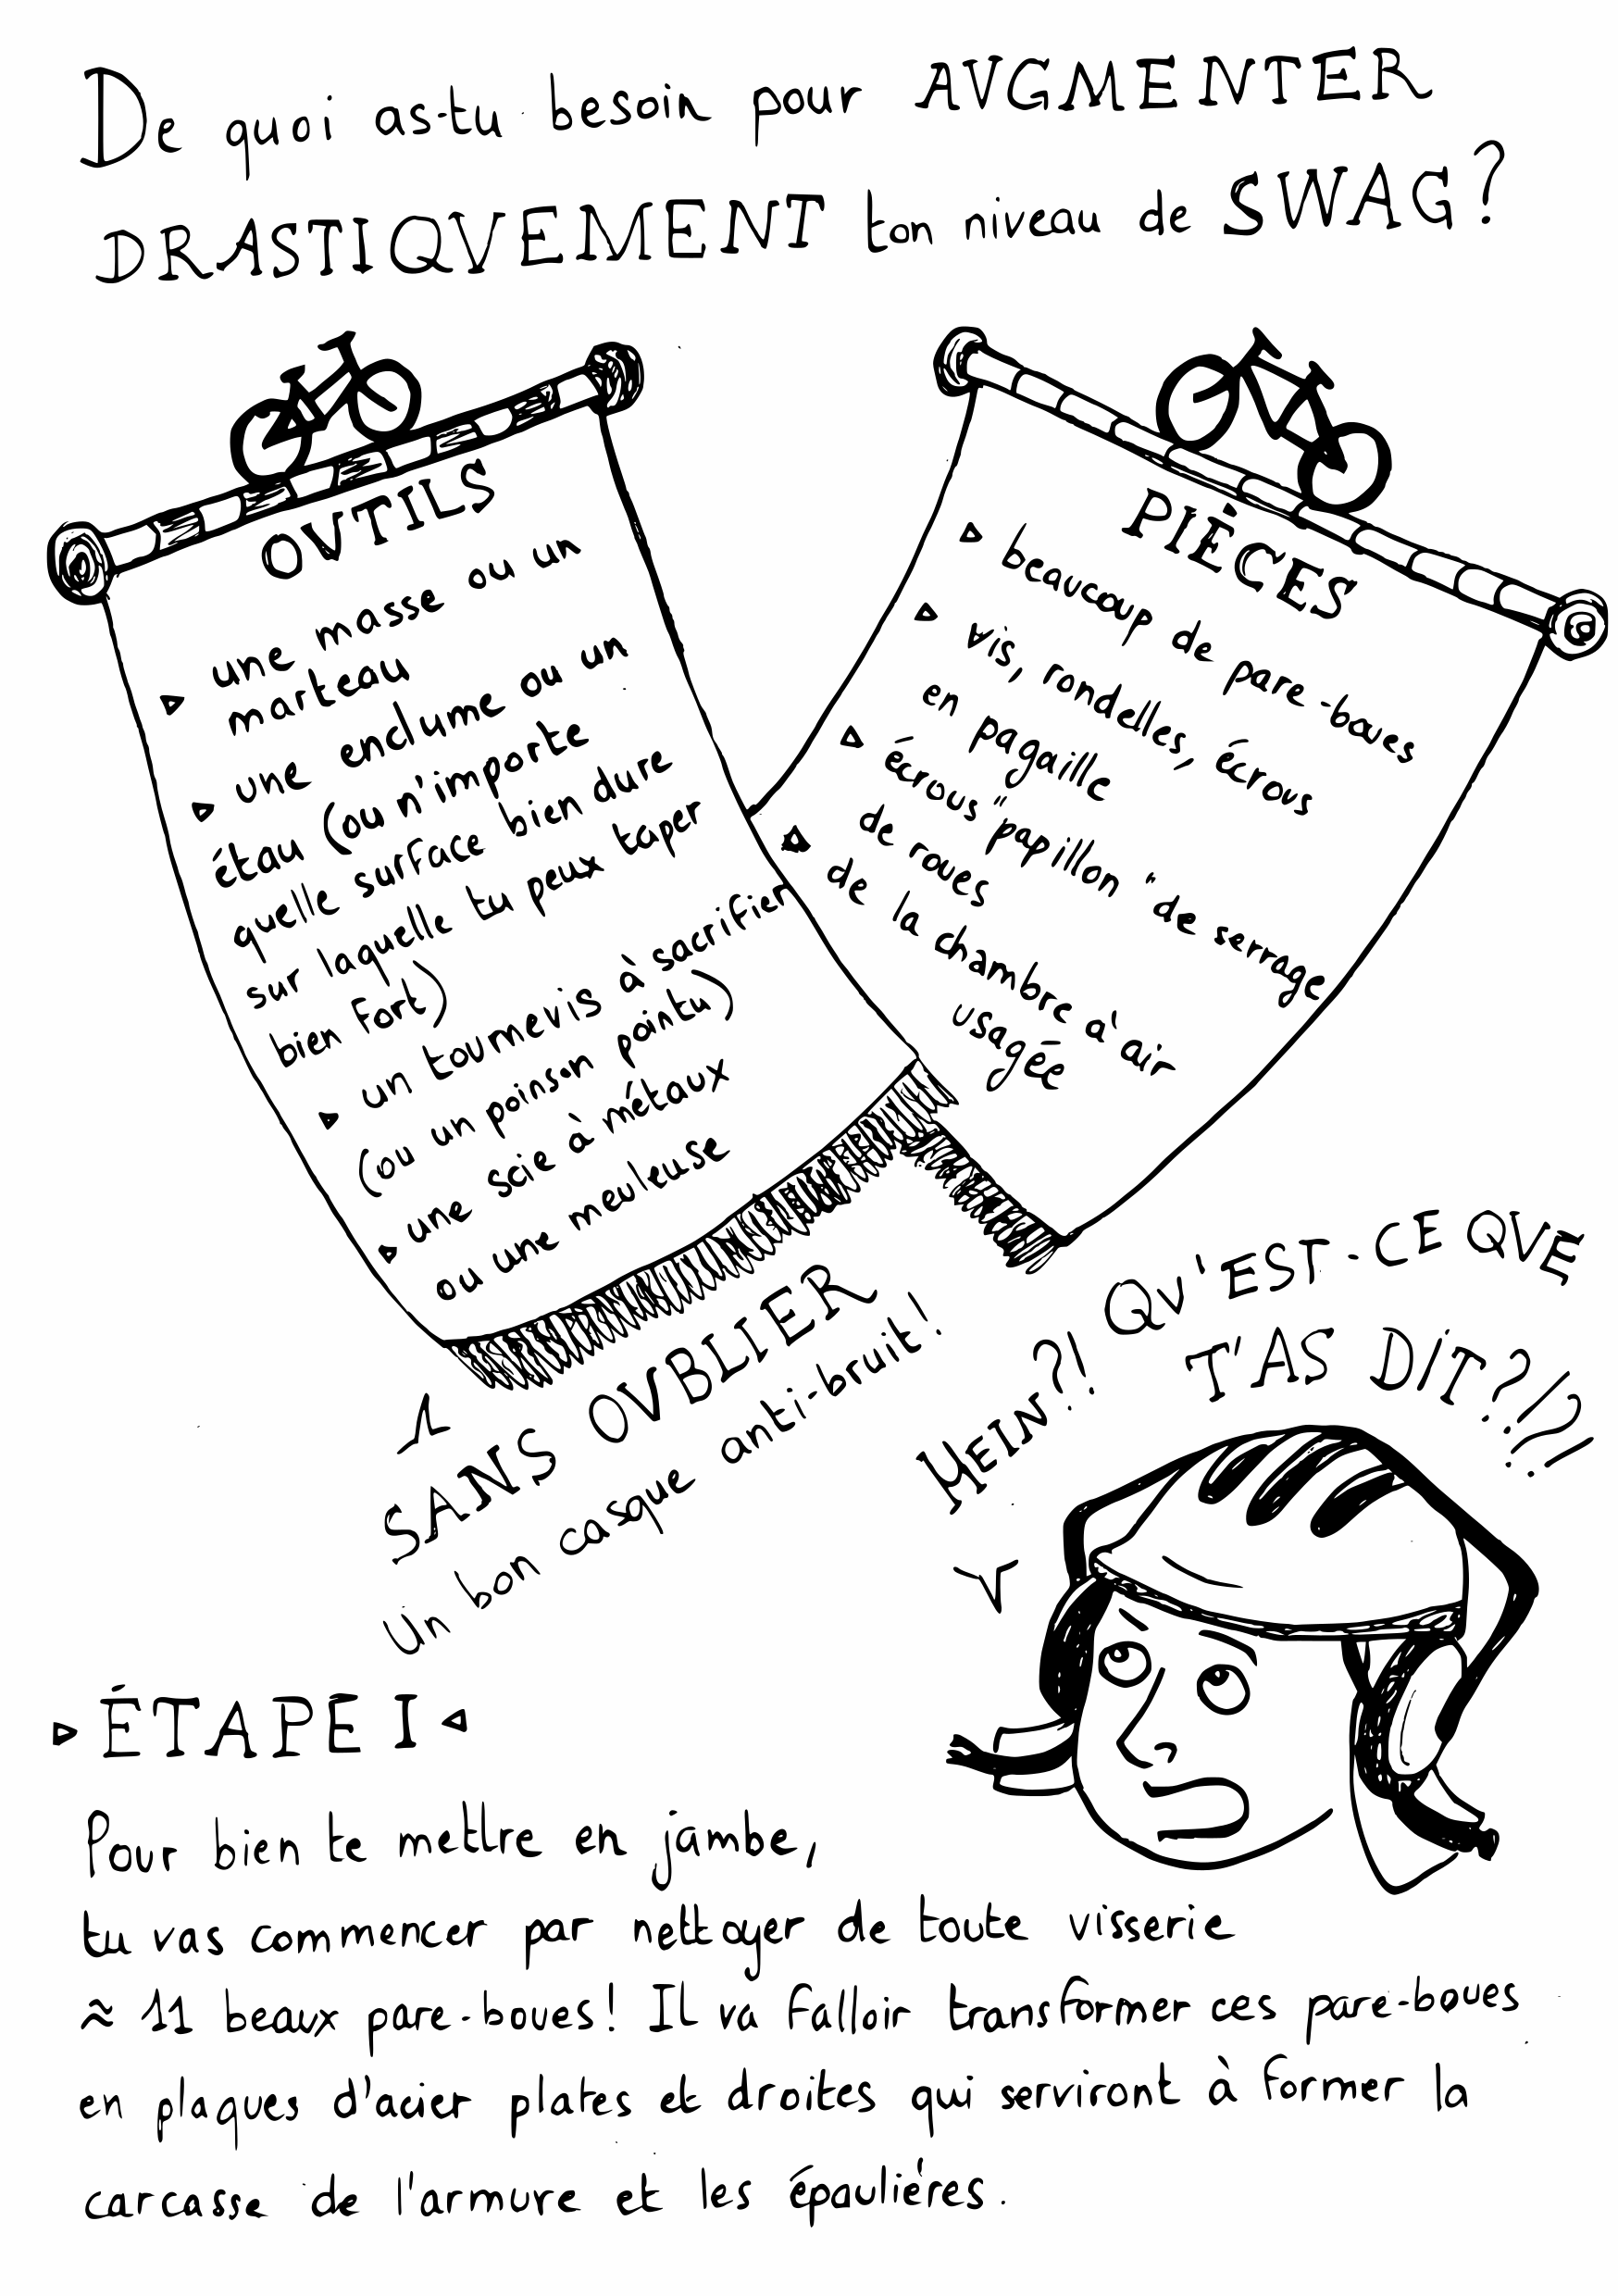 De quoi as-tu besoin pour AVGMENTER
DRASTIQVEMENT ton niveau de SWAG?
OVTILS
▹ une masse ou un
marteau
▹ une enclume ou un
étau (ou n'importe
quelle surface bien dure
sur laquelle tu peux taper
bien fort)
▹ un tournevis à sacrifier
(ou un poinson pointu)
▹ une scie à métaux
ou une meuleuse
PIÈCES
▹ beaucoup de pare-boues
▹ vis, rondelles, écrous
en pagaille
▹ écrous "papillon" de serrage
de roues
▹ de la chambre à air
usagée
SANS OVBLIER
Un bon casque anti-bruit!
HEIN?! QV'EST-CE QVE
T'AS DIT?!?!
▹ ÉTAPE I ◃
Pour bien te mettre en jambe,
tu vas commencer par nettoyer de toute visserie
≈ 11 beaux pare-boues! Il va falloir transformer ces pare-boues
en plaques d'acier plates et droites qui serviront à former la
carcasse de l'armure et les épaulières.